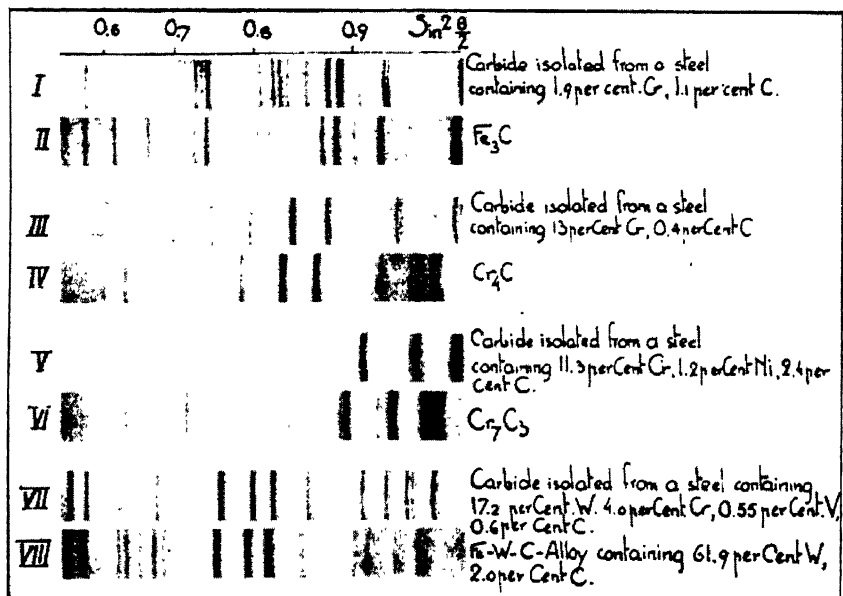 0.6 0.7 0.8 0.9 Sin² θ/2
I
Carbide isolated from a steel
containing 1.9 per cent. Cr, 1.1 per cent C.
II
Fe₃C
III
Carbide isolated from a steel
containing 13 per Cent Cr, 0.4 per Cent C
IV
Cr₄C
V
Carbide isolated from a steel
containing 11.3 per Cent Cr, 1.2 per Cent Ni, 2.4 per
Cent C.
VI
Cr₇C₃
VII
Carbide isolated from a steel containing
17.2 per Cent. W. 4.0 per Cent Cr, 0.55 per Cent. V,
0.6 per Cent C.
VIII
Fe-W-C-Alloy containing 61.9 per Cent W,
2.0 per Cent C.